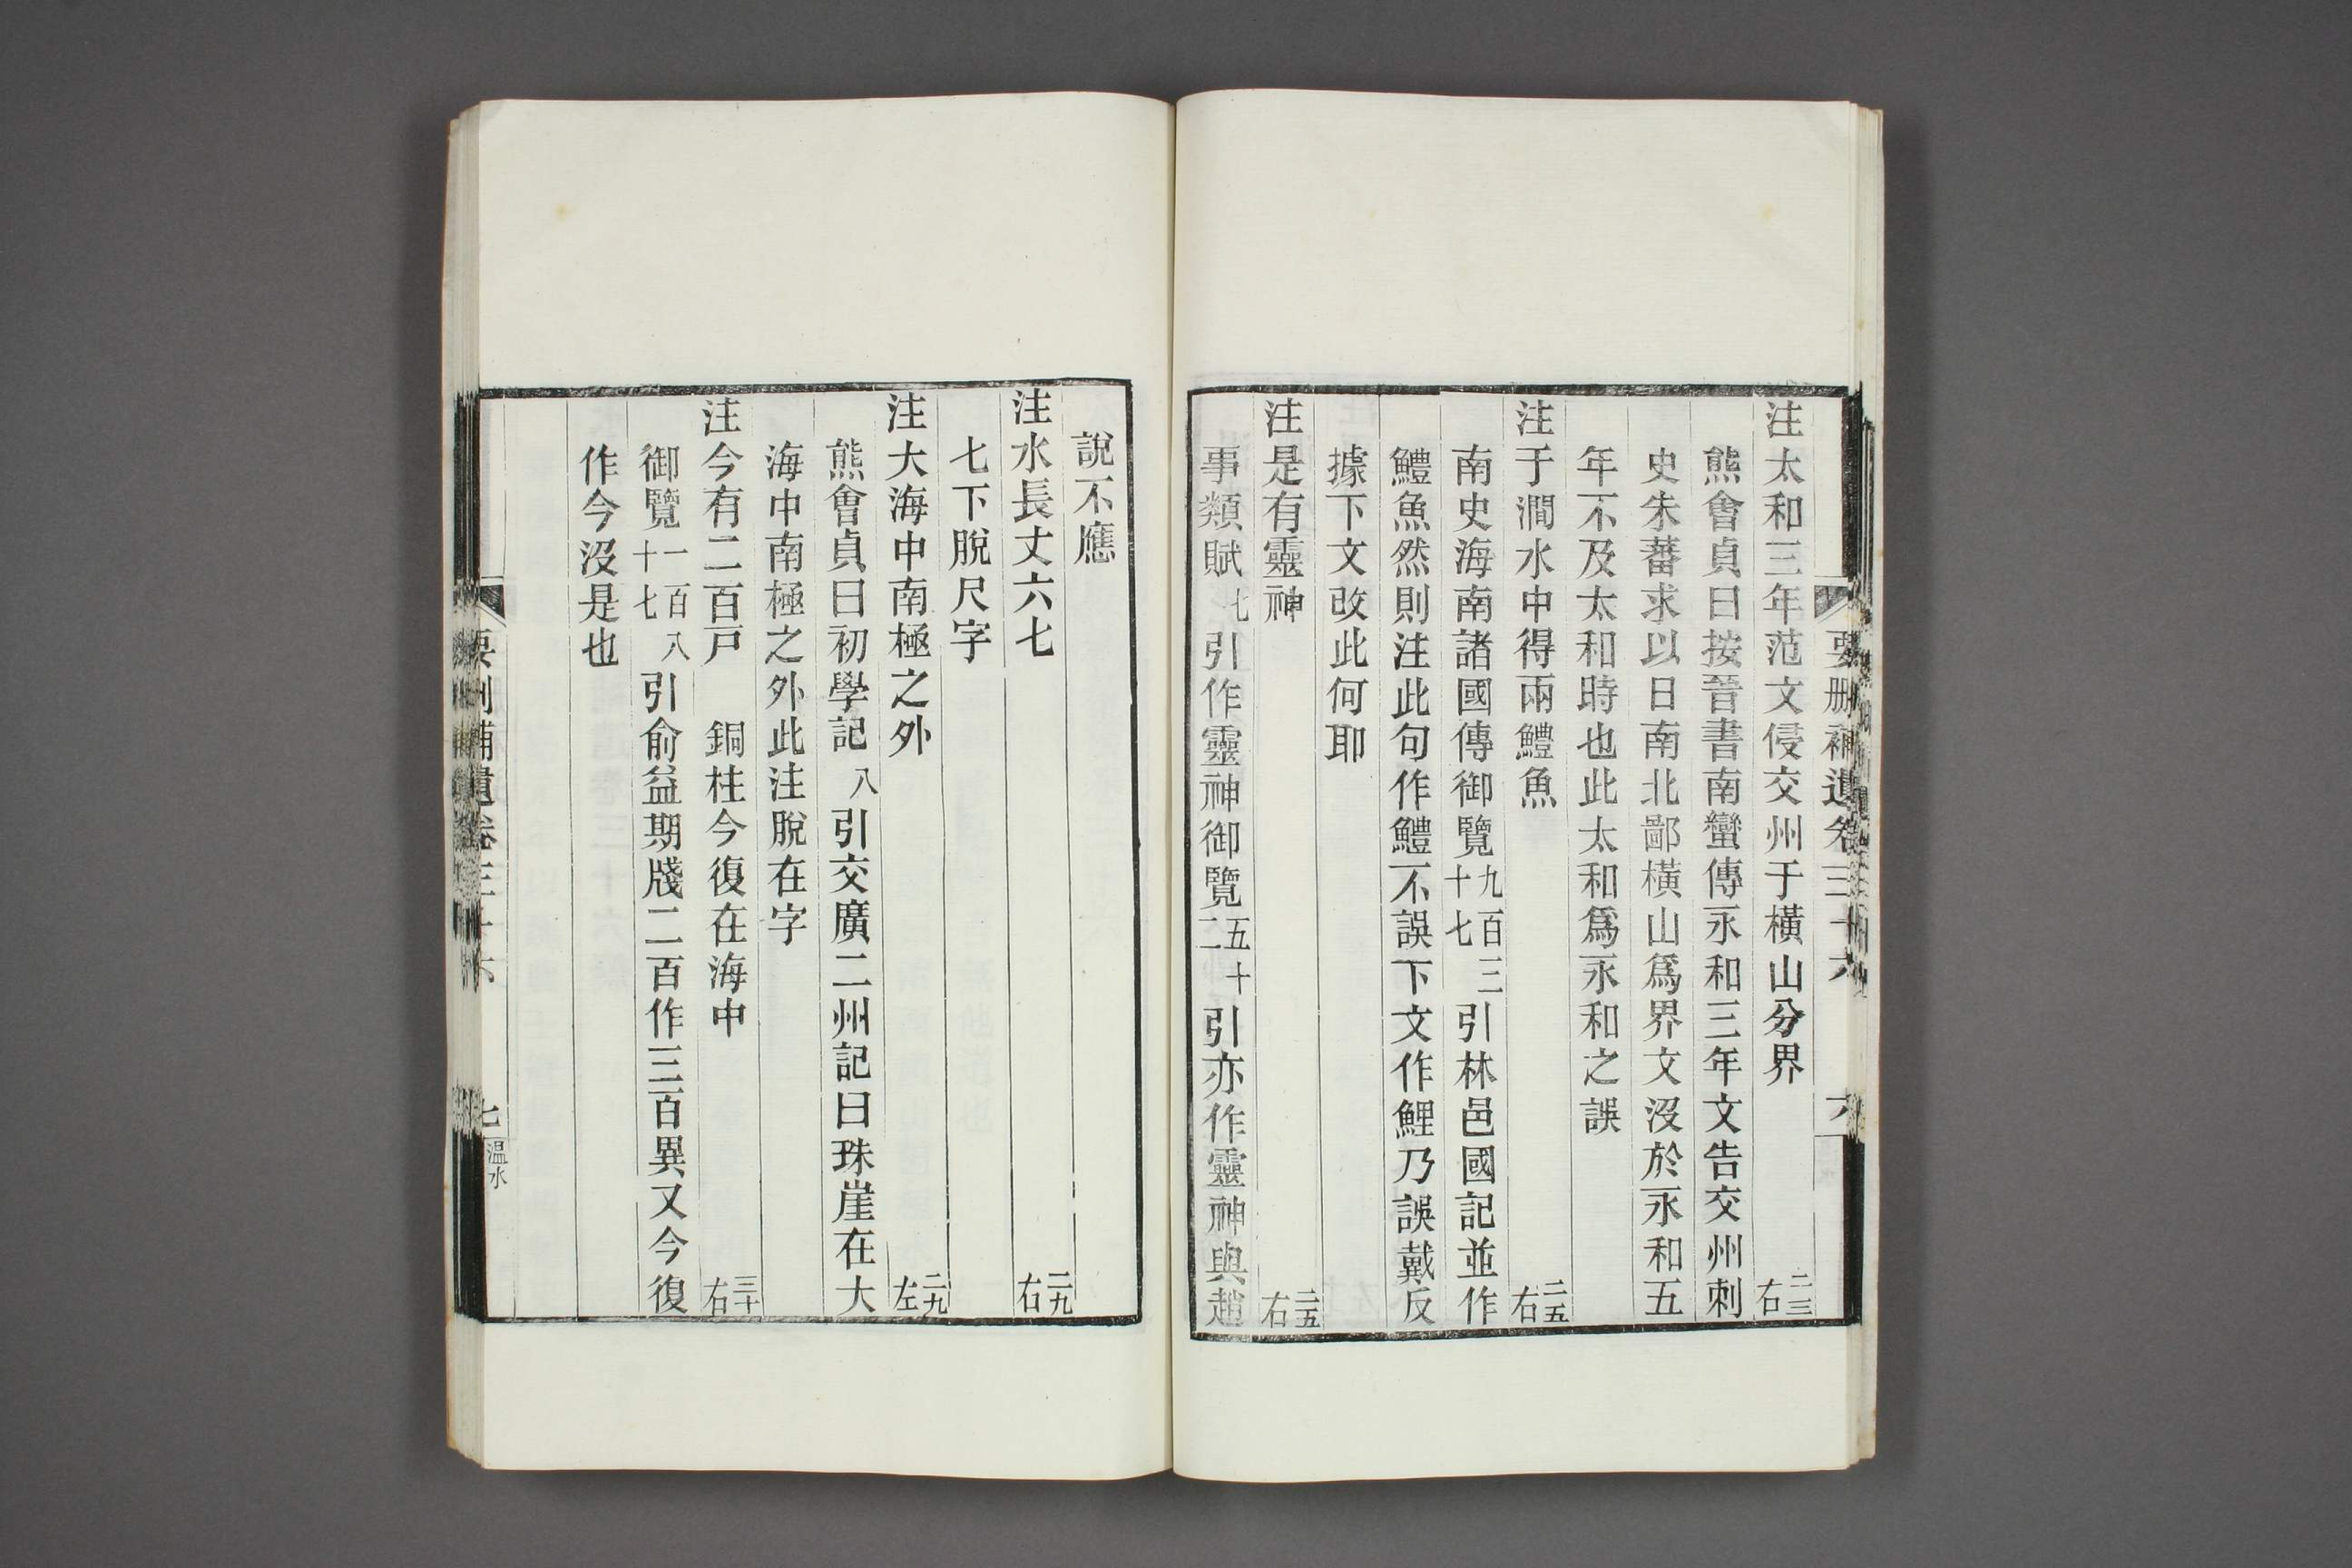 要刪補遺卷三十六 六
注太和三年范文侵交州于橫山分界 二三右
熊會貞曰按晉書南蠻傳永和三年文告交州刺
史朱蕃求以日南北鄙橫山爲界文沒於永和五
年不及太和時也此太和爲永和之誤
注于澗水中得兩鱧魚 二五右
南史海南諸國傳御覽九百三十七引林邑國記並作
鱧魚然則注此句作鱧不誤下文作鯉乃誤戴反
據下文改此何耶
注是有靈神 二五右
事類賦七引作靈神御覽五十二引亦作靈神與趙
說不應
注水長丈六七 二九右
七下脫尺字
注大海中南極之外 二九左
熊會貞曰初學記八引交廣二州記曰珠崖在大
海中南極之外此注脫在字
注今有二百戸 銅柱今復在海中 三十右
御覽一百八十七引俞益期牋二百作三百異又今復
作今沒是也
要刪補遺卷三十六 七 溫水